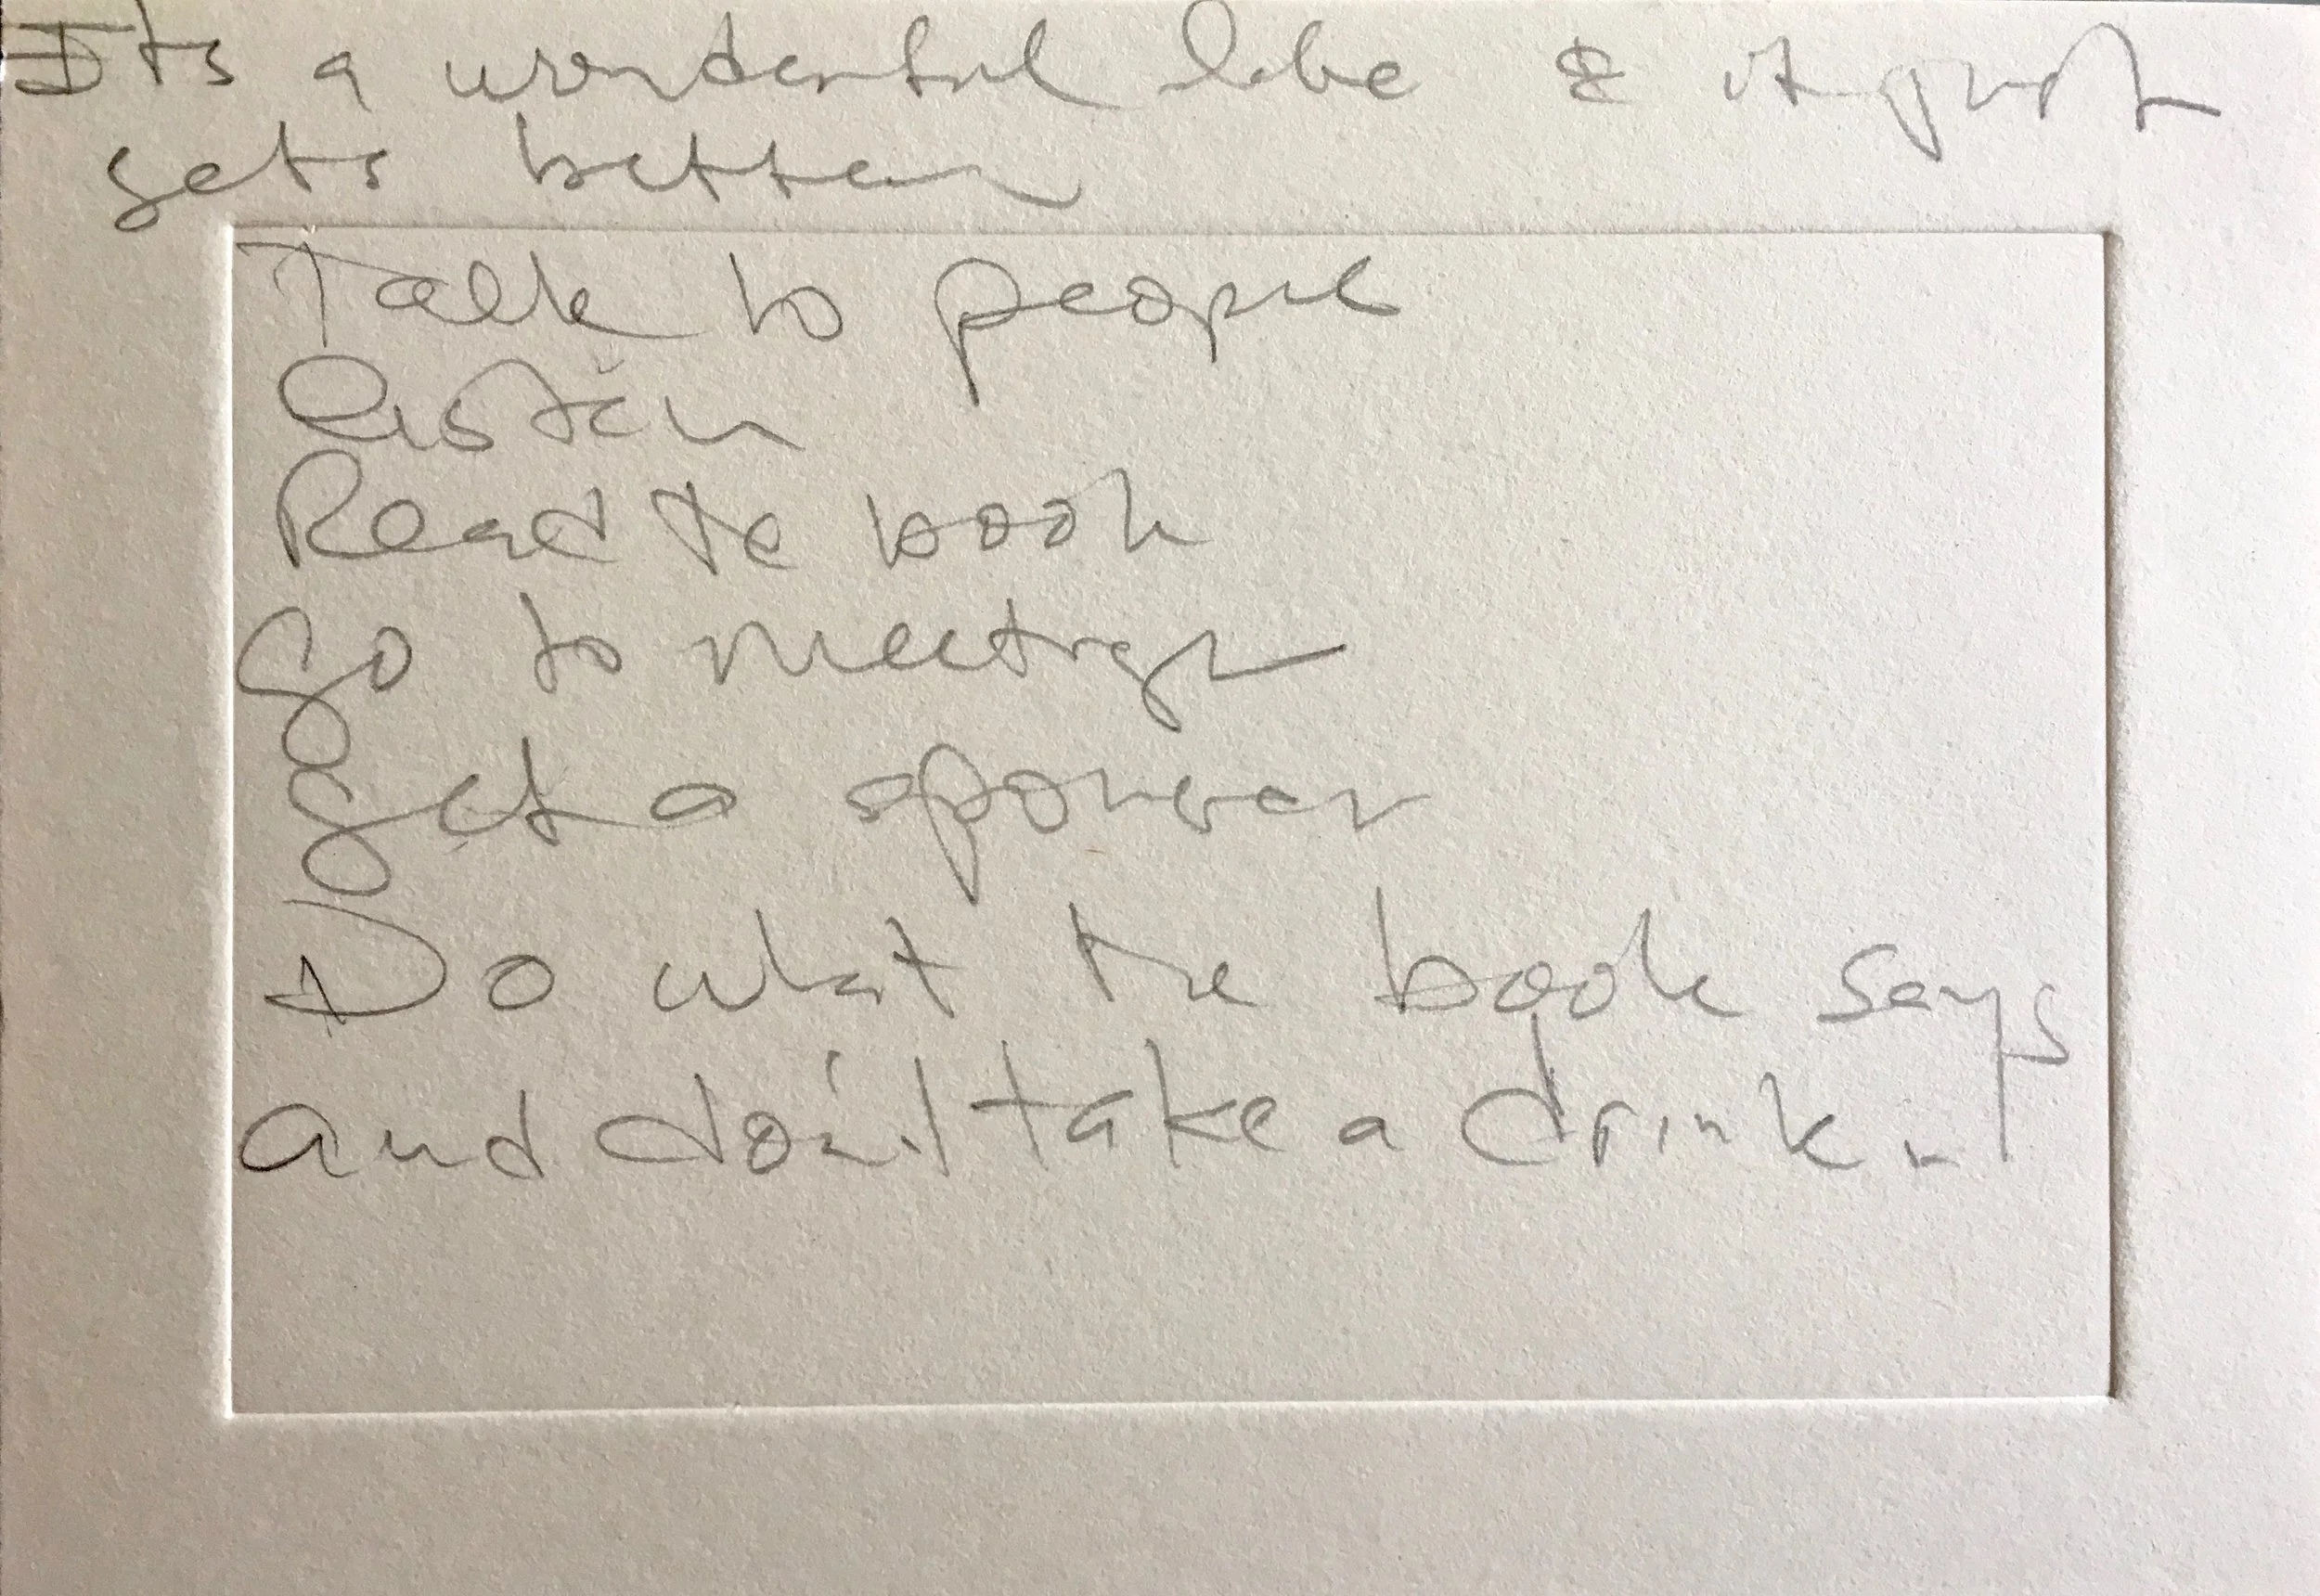 Its a wonderful life & it just
gets better
Talk to people
Listen
Read the book
Go to meetings
get a sponser
Do what the book says
and don't take a drink.